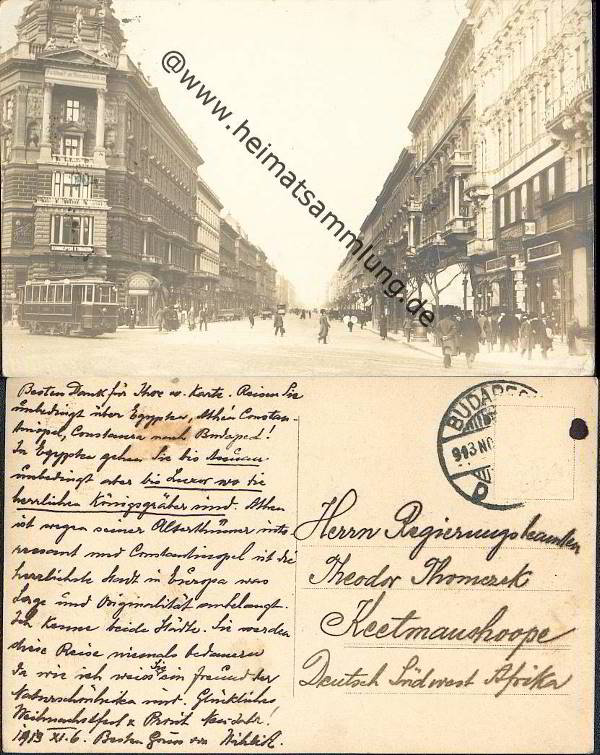 @www.heimatsammlung.de
Besten Dank für Ihre w. Karte. Reisen Sie
unbedingt über Egypten, Athen Constan-
tinopel, Constanza nach Budapest!
In Egypten gehen Sie bis Assuan
unbedingt aber bis Luxor wo die
herrlichen Königsgräber sind. Athen
ist wegen seiner Alterthümer inte-
ressant und Constantinopel ist die
herrlichste Stadt in Europa was
Lage und Originalität anbelangt.
Ich kenne beide Städte. Sie werden
diese Reise niemals bedauern
da wie ich weiss Sie ein freund der
Naturschönheiten sind. Glückliches
Weihnachtsfest & Prosit Neujahr!
1913 XI. 6. Besten Gruss von
BUDAPES
913 NO
Herrn Regierungsbeamten
Theodor Thomczek
Keetmanshoope
Deutsch Südwest Afrika